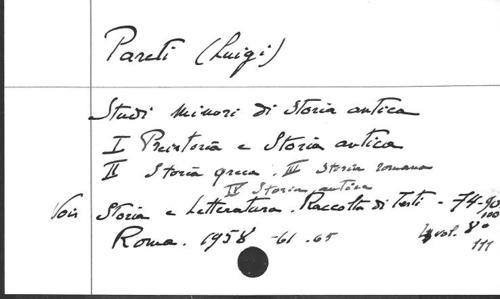 Pareti (Luigi)
Studi minori di Storia antica
I Preistoria e Storia antica
II Storia greca. III Storia romana
IV Storia antica
Voir Storia e Letteratura. Raccolta di Testi - 74-90
100
Roma. 1958 -61. 65 4 vol. 8°
111